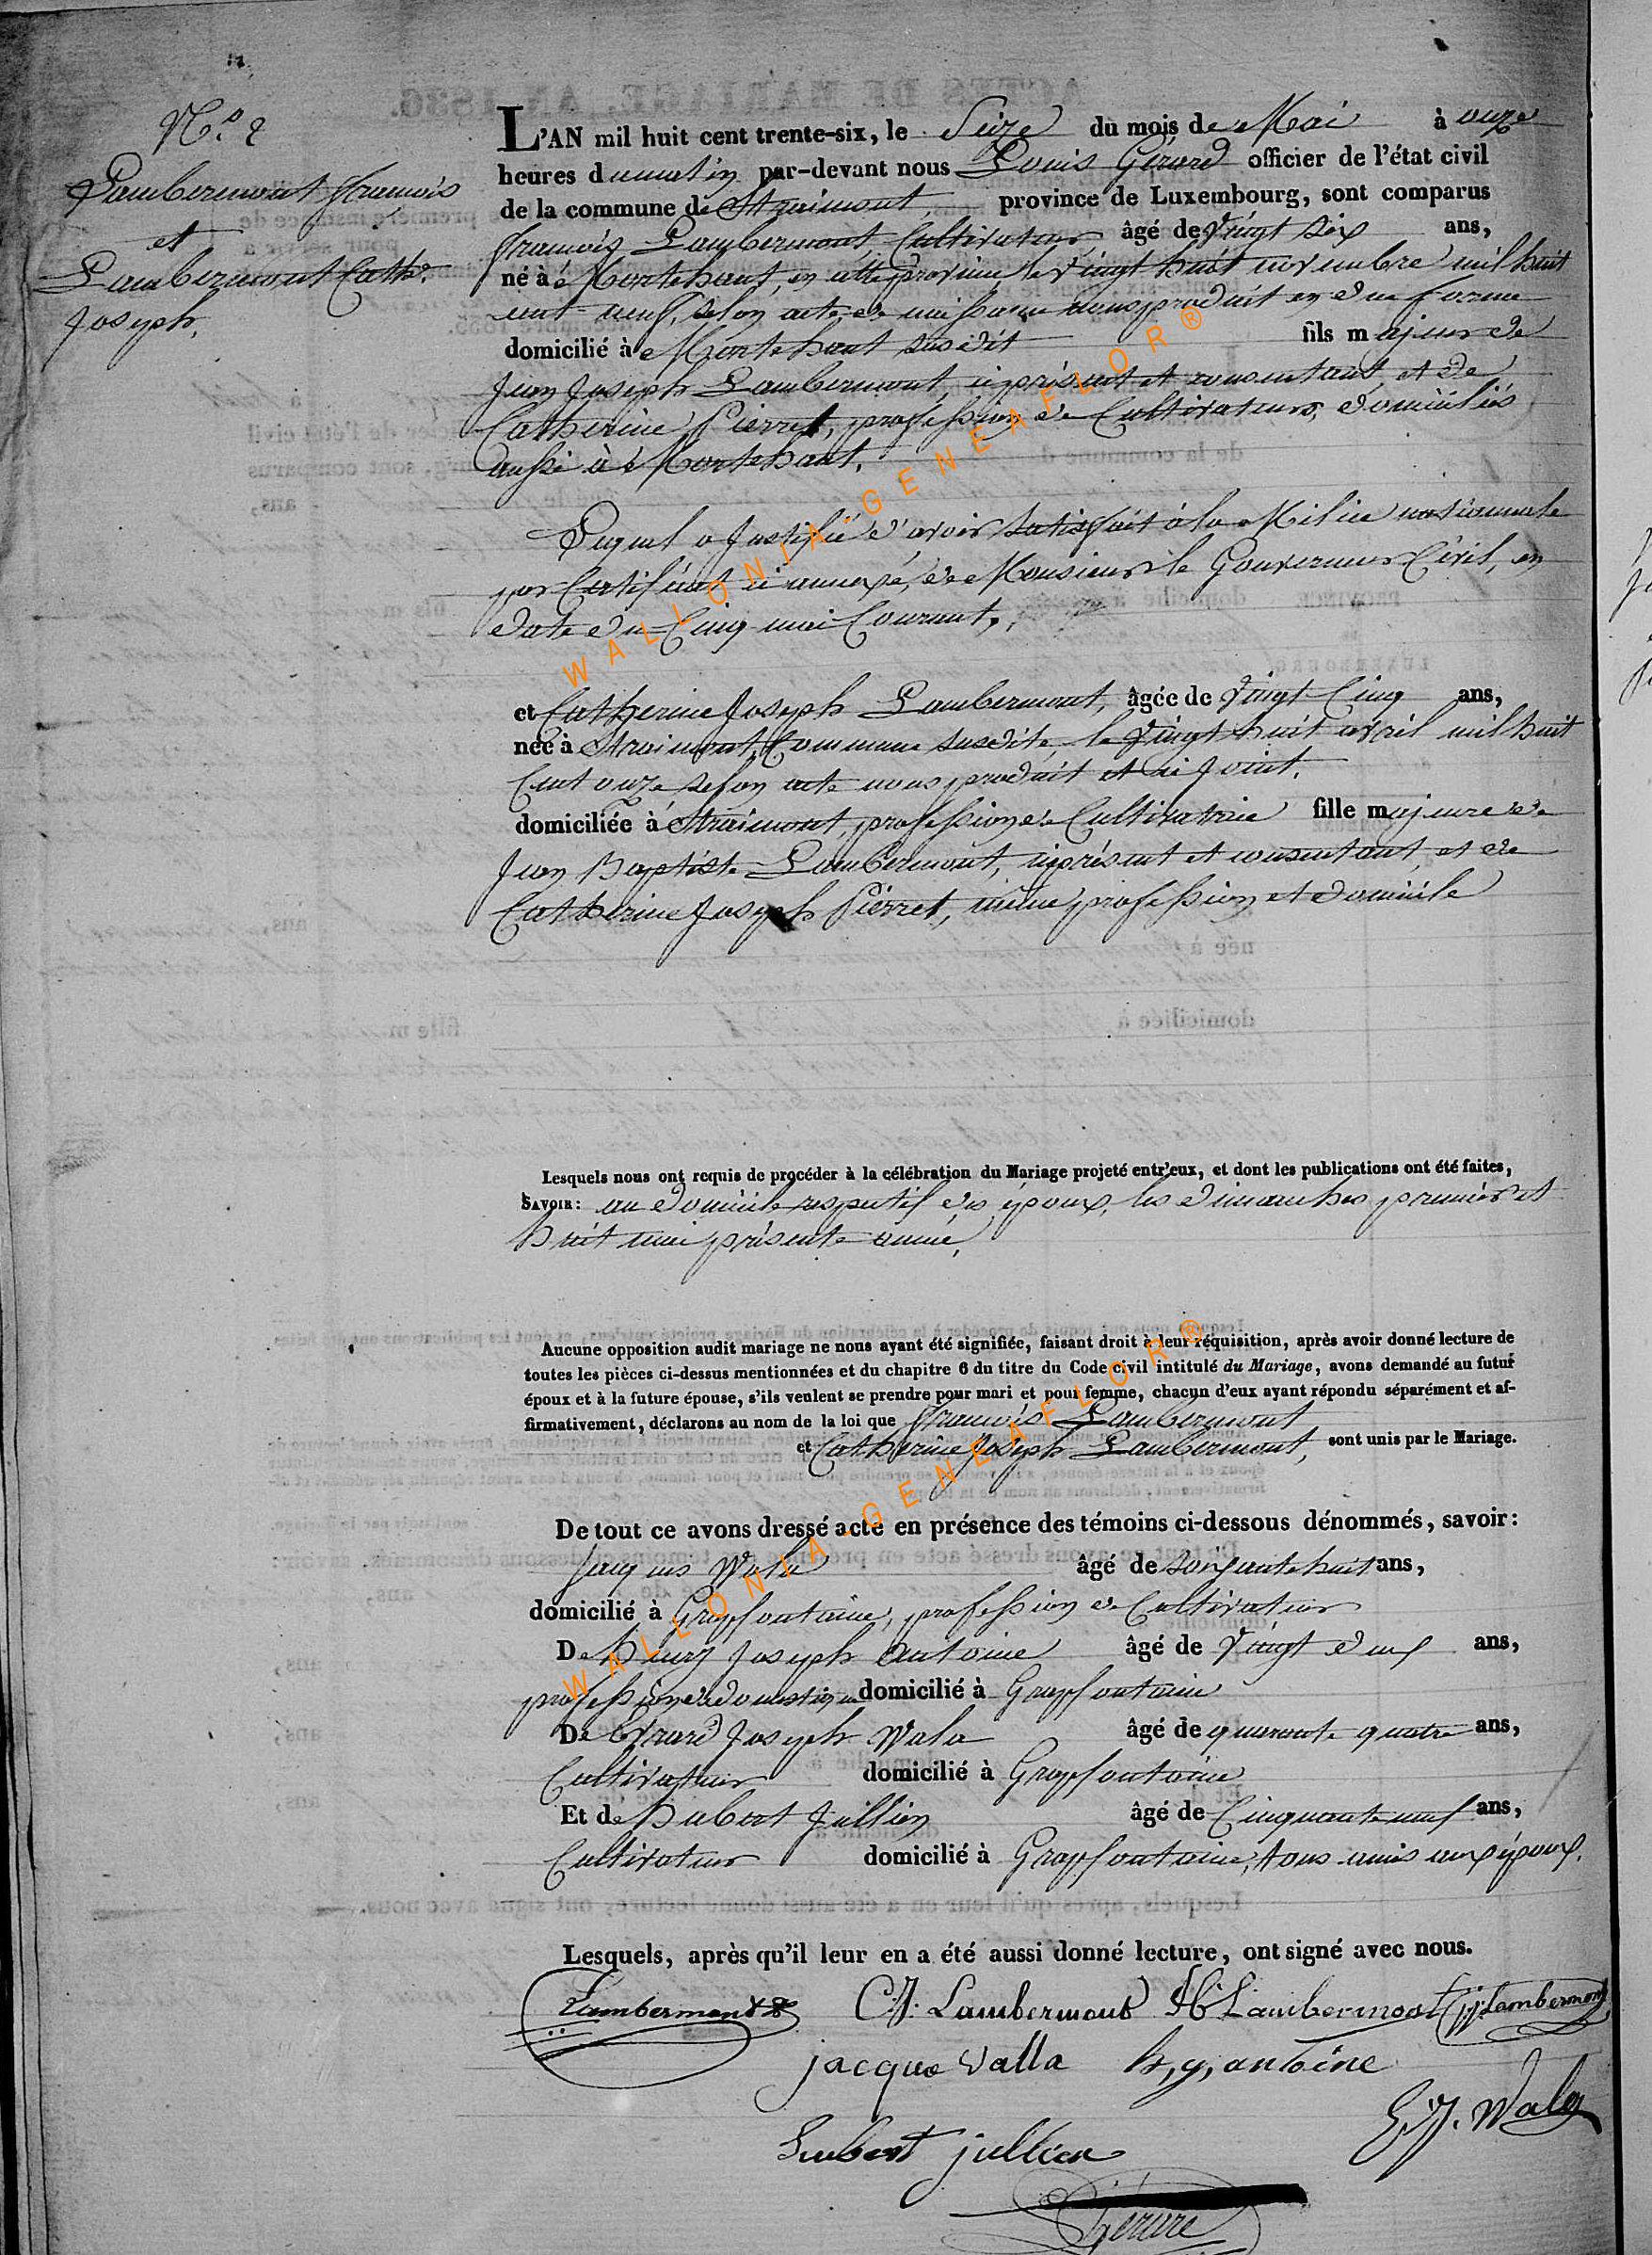 N.o 2
Lambermont François
et
Lambermont Cathe.
Joseph.
L'AN mil huit cent trente-six, le Seize du mois de Mai à onze
heures du matin par-devant nous Louis Gérard officier de l'état civil
de la commune de Straimont, province de Luxembourg, sont comparus
François Lambermont, Cultivateur âgé de Vingt Six ans,
né à Mortehant, en cette province, le vingt huit novembre mil huit
cent neuf, selon acte de naissance nous produit en due forme
domicilié à Mortehant susdit fils majeur de
Jean Joseph Lambermont, ci présent et consentant, et de
Catherine Pierret, profession de Cultivateurs, domiciliés
aussi à Mortehant.
Lequel a Justifié d'avoir satisfait à la Milice nationale
par Certificat ci annexé, de Monsieur le Gouverneur Civil, en
date du Cinq mai Courant.
et Catherine Joseph Lambermont, âgée de Vingt Cinq ans,
née à Straimont, Commune susdite, le Vingt huit avril mil huit
Cent onze selon acte nous produit et ci Joint.
domiciliée à Straimont, profession de Cultivatrice fille majeure de
Jean Baptiste Lambermont, ci présent et consentant, et de
Catherine Joseph Pierret, même profession et domicile
Lesquels nous ont requis de procéder à la célébration du Mariage projeté entr'eux, et dont les publications ont été faites,
SAVOIR: au domicile respectif des époux, les dimanches premier et
huit mai présente année,
Aucune opposition audit mariage ne nous ayant été signifiée, faisant droit à leur réquisition, après avoir donné lecture de
toutes les pièces ci-dessus mentionnées et du chapitre 6 du titre du Code civil intitulé du Mariage, avons demandé au futur
époux et à la future épouse, s'ils veulent se prendre pour mari et pour femme, chacun d'eux ayant répondu séparément et af-
firmativement, déclarons au nom de la loi que François Lambermont
et Catherine Joseph Lambermont, sont unis par le Mariage.
De tout ce avons dressé acte en présence des témoins ci-dessous dénommés, savoir:
Jacques Wala âgé de soixante huit ans,
domicilié à Grapfontaine, profession de Cultivateur
De Henry Joseph Antoine âgé de Vingt deux ans,
profession de domestique domicilié à Grapfontaine
De Erard Joseph Wala âgé de quarante quatre ans,
Cultivateur domicilié à Grapfontaine
Et de Hubert Jullien âgé de Cinquante neuf ans,
Cultivateur domicilié à Grapfontaine, tous amis aux époux.
Lesquels, après qu'il leur en a été aussi donné lecture, ont signé avec nous.
Lambermont C:J: Lambermont Lambermont JJ Lambermont
jacque valla h,g, antoine
E:J. Wala
hubert jullien
Gérard
WALLONIA-GENEAFLOR®
WALLONIA-GENEAFLOR®